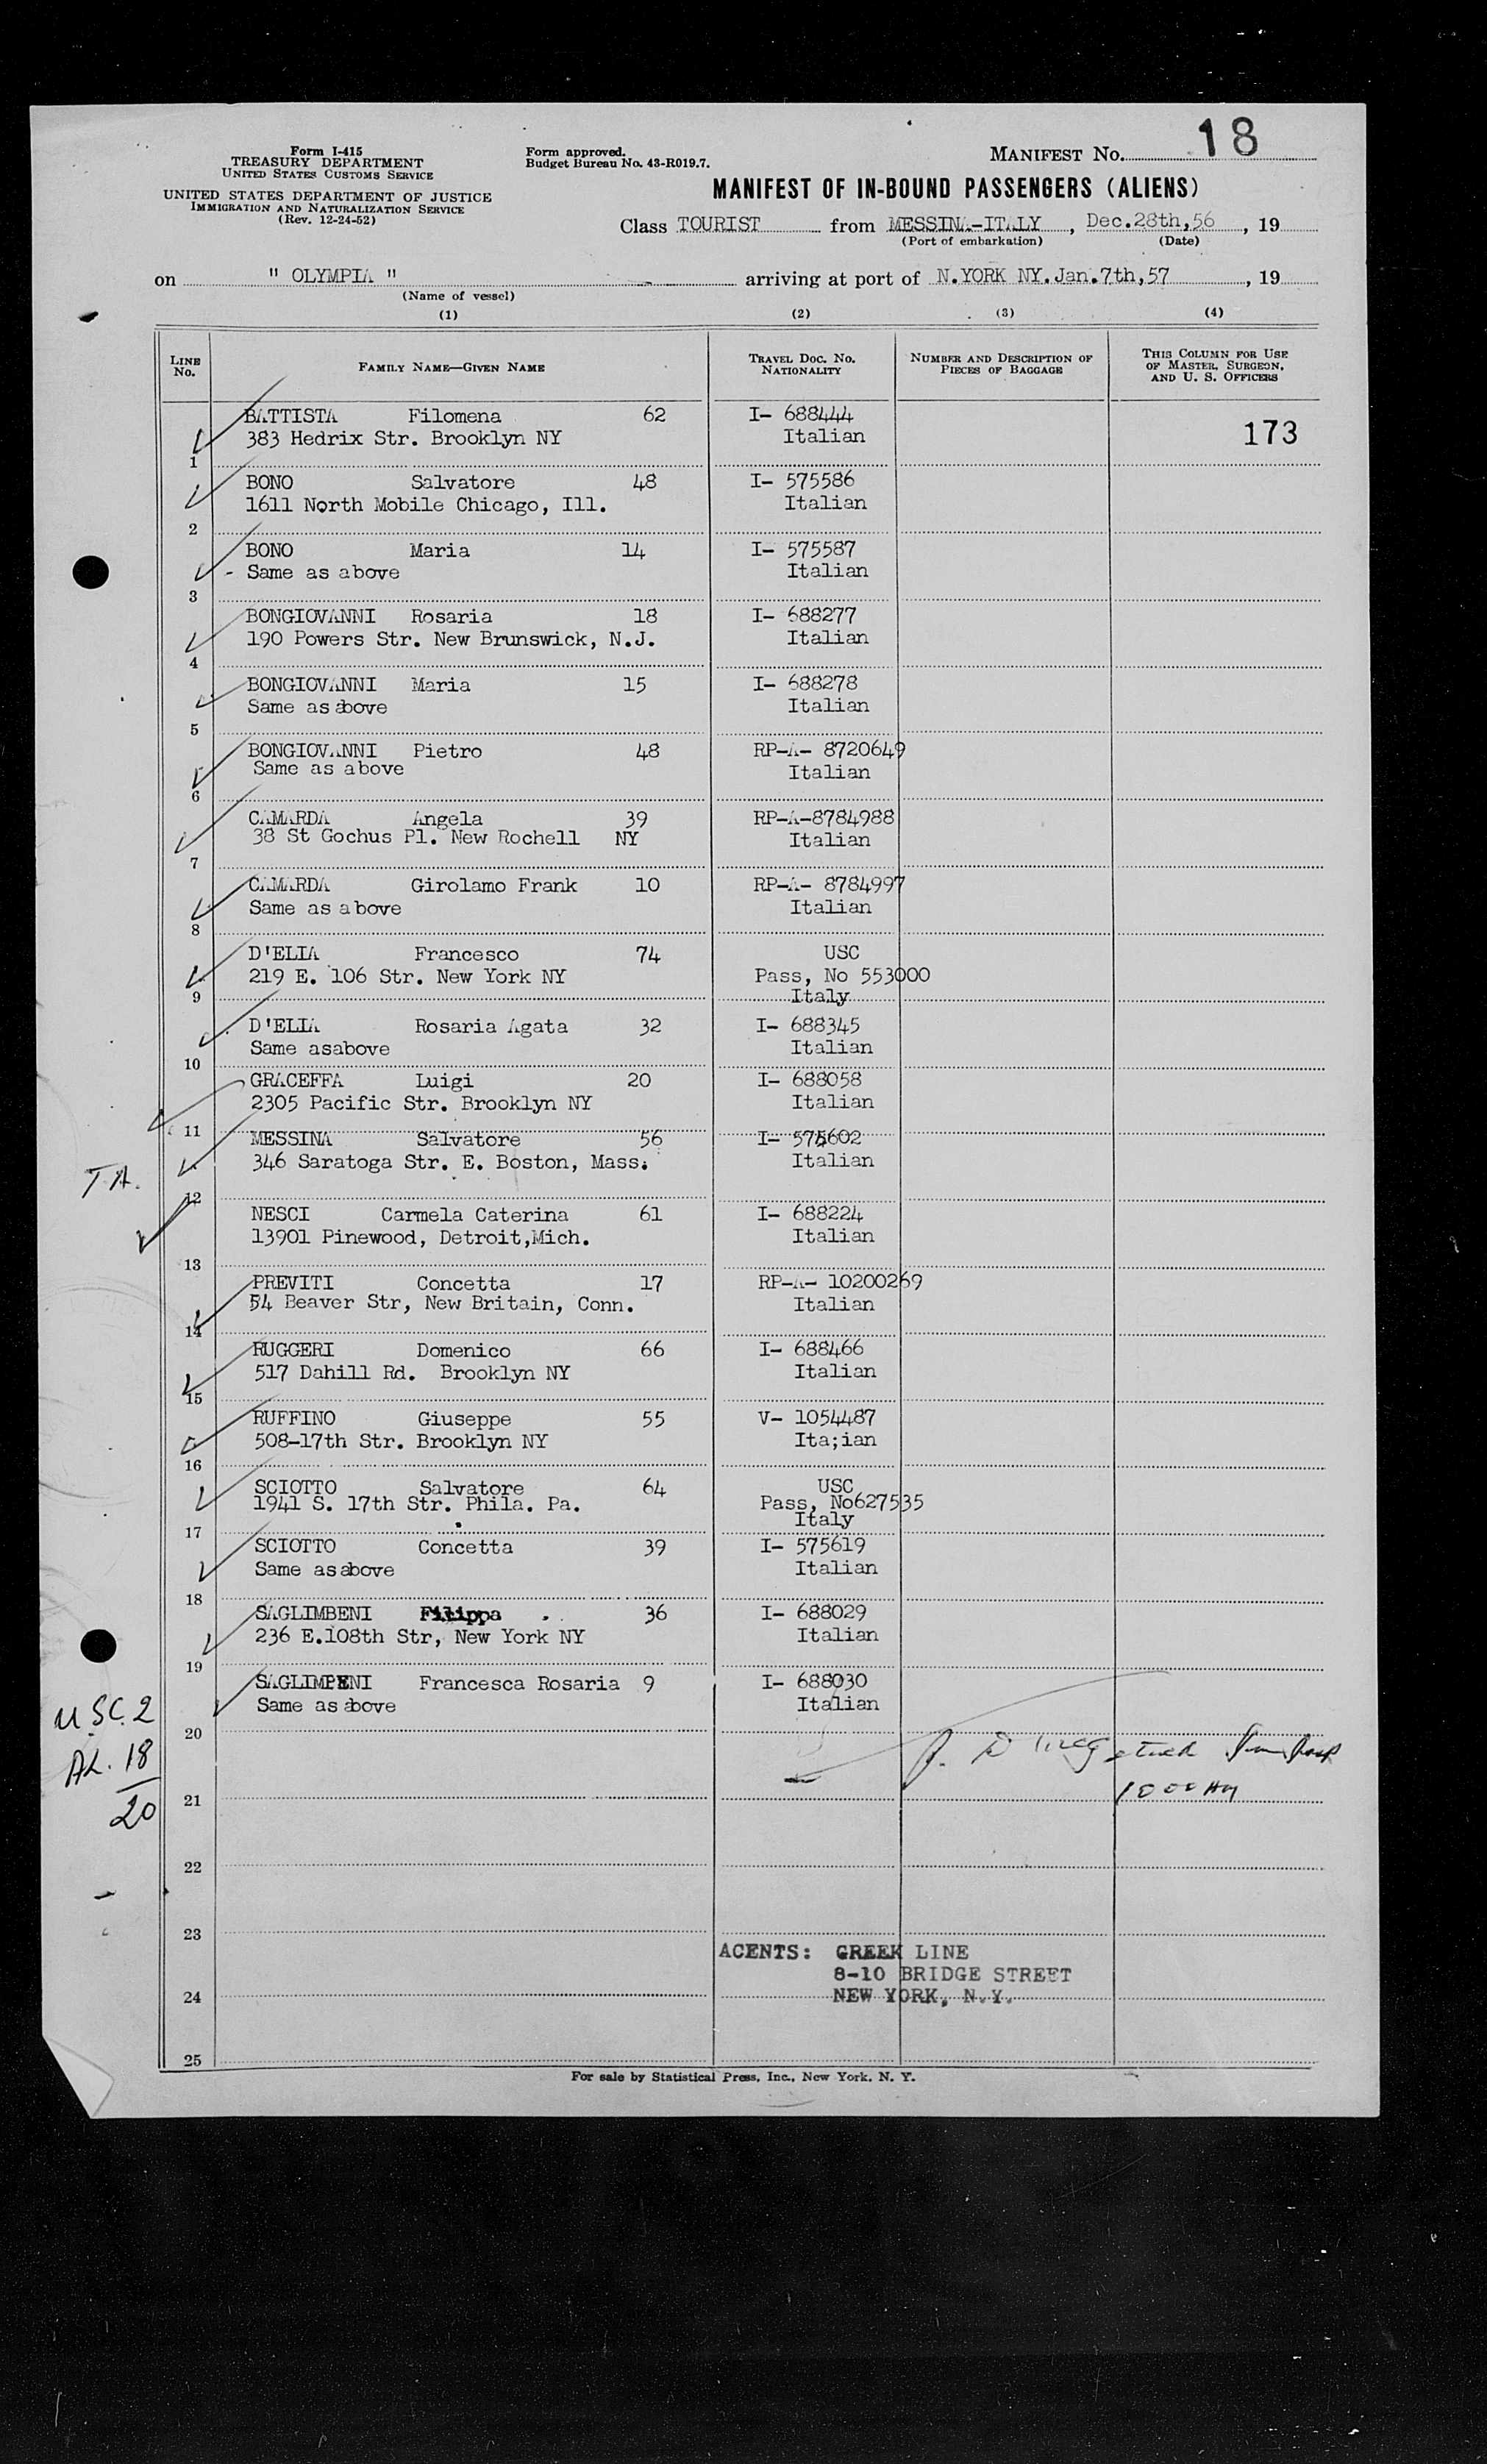 Form I-415
TREASURY DEPARTMENT
UNITED STATES CUSTOMS SERVICE
UNITED STATES DEPARTMENT OF JUSTICE
IMMIGRATION AND NATURALIZATION SERVICE
(Rev. 12-24-52)
Form approved.
Budget Bureau No. 43-R019.7.
MANIFEST No. 18
MANIFEST OF IN-BOUND PASSENGERS (ALIENS)
Class TOURIST from MESSINA-ITALY, Dec.28th,56, 19
(Port of embarkation) (Date)
on " OLYMPIA " arriving at port of N.YORK NY.Jan.7th,57, 19
(Name of vessel)
(1) (2) (3) (4)
LINE No. FAMILY NAME—GIVEN NAME TRAVEL DOC. NO. NATIONALITY NUMBER AND DESCRIPTION OF PIECES OF BAGGAGE THIS COLUMN FOR USE OF MASTER, SURGEON, AND U. S. OFFICERS
BATTISTA Filomena 62 I- 688444
383 Hedrix Str. Brooklyn NY Italian 173
1
BONO Salvatore 48 I- 575586
1611 North Mobile Chicago, Ill. Italian
2
BONO Maria 14 I- 575587
- Same as above Italian
3
BONGIOVANNI Rosaria 18 I- 688277
190 Powers Str. New Brunswick, N.J. Italian
4
BONGIOVANNI Maria 15 I- 688278
Same as above Italian
5
BONGIOVANNI Pietro 48 RP-A- 8720649
Same as above Italian
6
CAMARDA Angela 39 RP-A-8784988
38 St Gochus Pl. New Rochell NY Italian
7
CAMARDA Girolamo Frank 10 RP-A- 8784997
Same as above Italian
8
D'ELIA Francesco 74 USC
219 E. 106 Str. New York NY Pass, No 553000
9 Italy
D'ELIA Rosaria Agata 32 I- 688345
Same asabove Italian
10
GRACEFFA Luigi 20 I- 688058
2305 Pacific Str. Brooklyn NY Italian
11
MESSINA Salvatore 56 I- 575602
346 Saratoga Str. E. Boston, Mass. Italian
T.A.
12
NESCI Carmela Caterina 61 I- 688224
13901 Pinewood, Detroit,Mich. Italian
13
PREVITI Concetta 17 RP-A- 10200269
54 Beaver Str, New Britain, Conn. Italian
14
RUGGERI Domenico 66 I- 688466
517 Dahill Rd. Brooklyn NY Italian
15
RUFFINO Giuseppe 55 V- 1054487
508-17th Str. Brooklyn NY Ita;ian
16
SCIOTTO Salvatore 64 USC
1941 S. 17th Str. Phila. Pa. Pass, No627535
17 Italy
SCIOTTO Concetta 39 I- 575619
Same as above Italian
18
SAGLIMBENI Filippa 36 I- 688029
236 E.108th Str, New York NY Italian
19
SAGLIMPENI Francesca Rosaria 9 I- 688030
Same as above Italian
20
U.SC. 2
AL. 18
20
21
22
23
AGENTS: GREEK LINE
8-10 BRIDGE STREET
24 NEW YORK, N.Y.
25
For sale by Statistical Press, Inc., New York, N. Y.